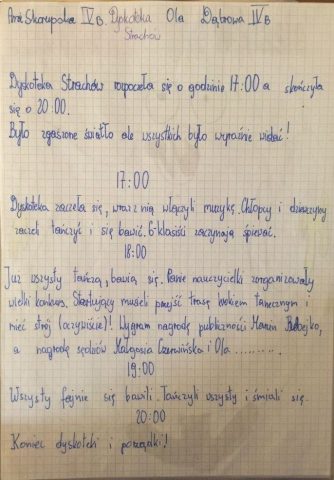 Ania Skorupska IV B. Dyskoteka Ola Dąbrowa IV B
Strachów
Dyskoteka Strachów rozpoczeła się o godzinie 17:00 a skończyła
się o 20:00.
Było zgaszone światło ale wszystkich było wyraźnie widać!
17:00
Dyskoteka zaczeła się, wraz z nią włączyli muzykę. Chłopcy i dziewczyny
zaczeli tańczyć i się bawić. 6-klasiści zaczynają śpiewać.
18:00
Już wszysty tańczą, bawią się. Panie nauczycielki zorganizowały
wielki konkurs. Startujący museli przejść trasę krokiem tanecznym i
mieć strój (oczywiście)! Wygram nagrodę publiczności Marcin
a nagrodę sędziów Małgosia Czerwińska i Ola ..........
19:00
Wszysty fajnie się bawili. Tańczyli wszysty i śmiali się.
20:00
Koniec dyskoteki i porządki!